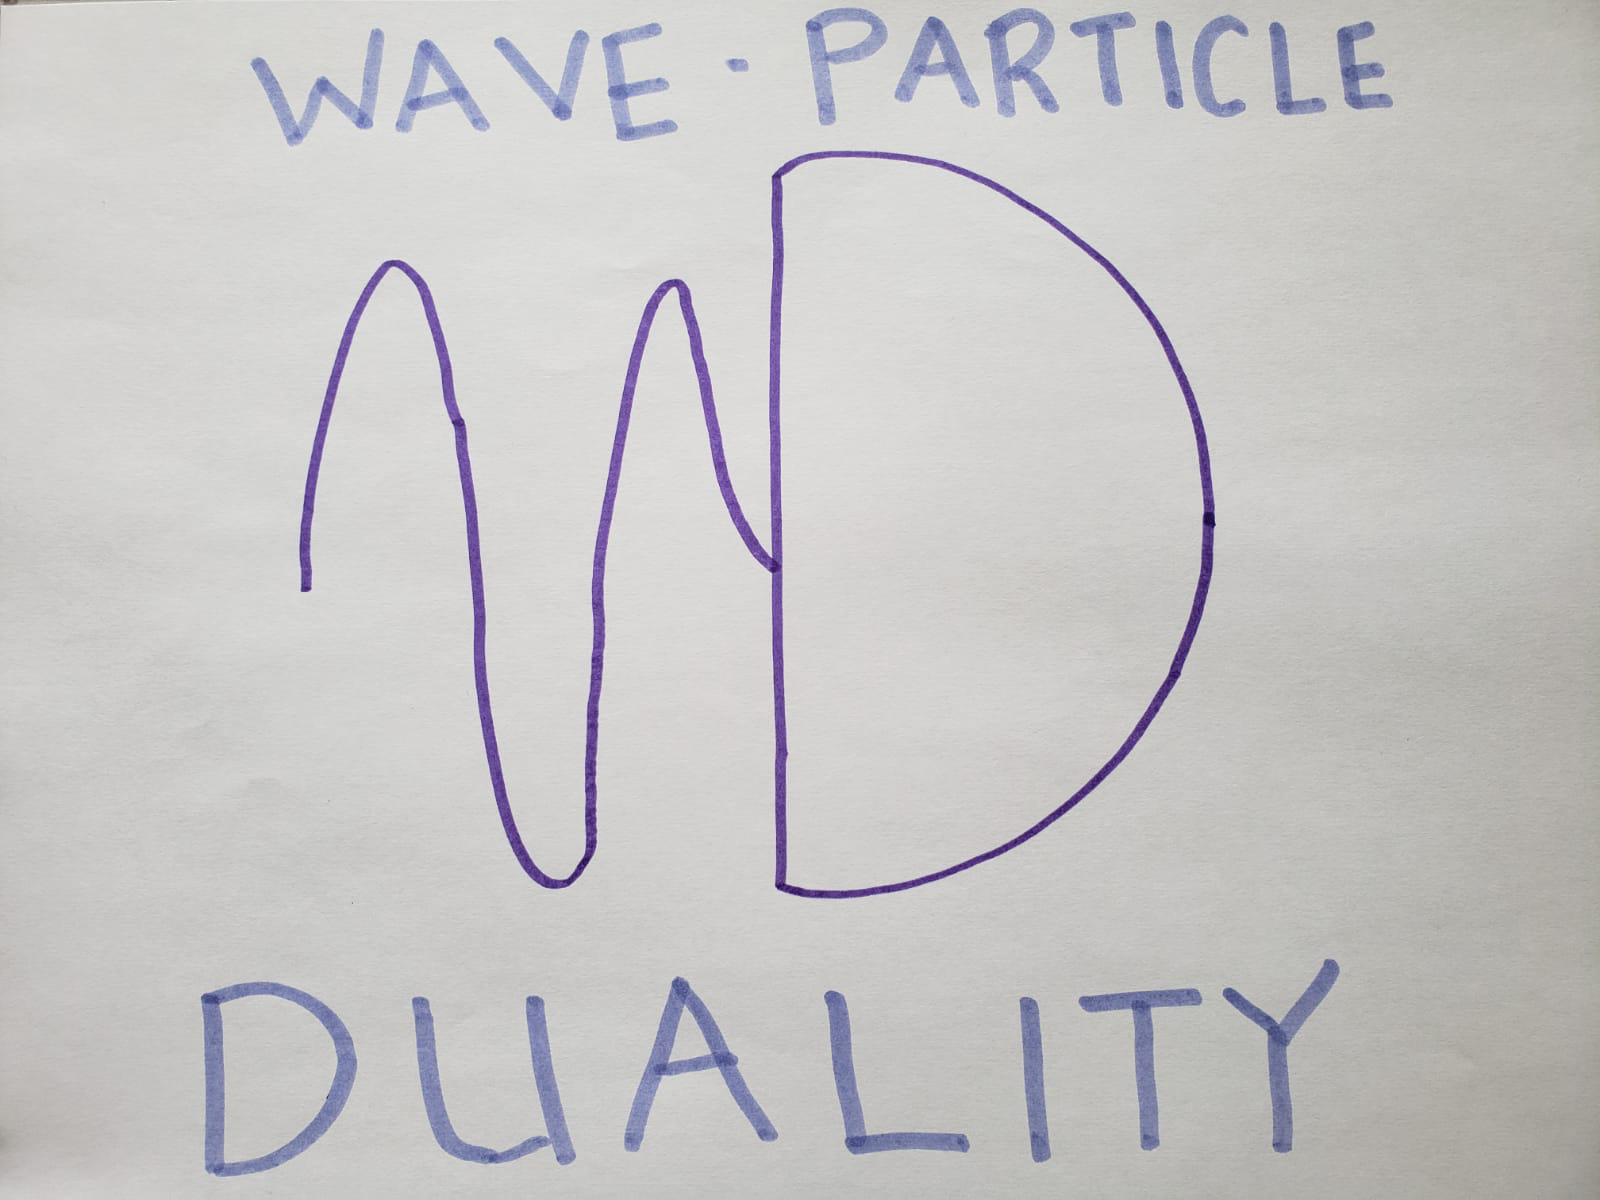 WAVE - PARTICLE
DUALITY